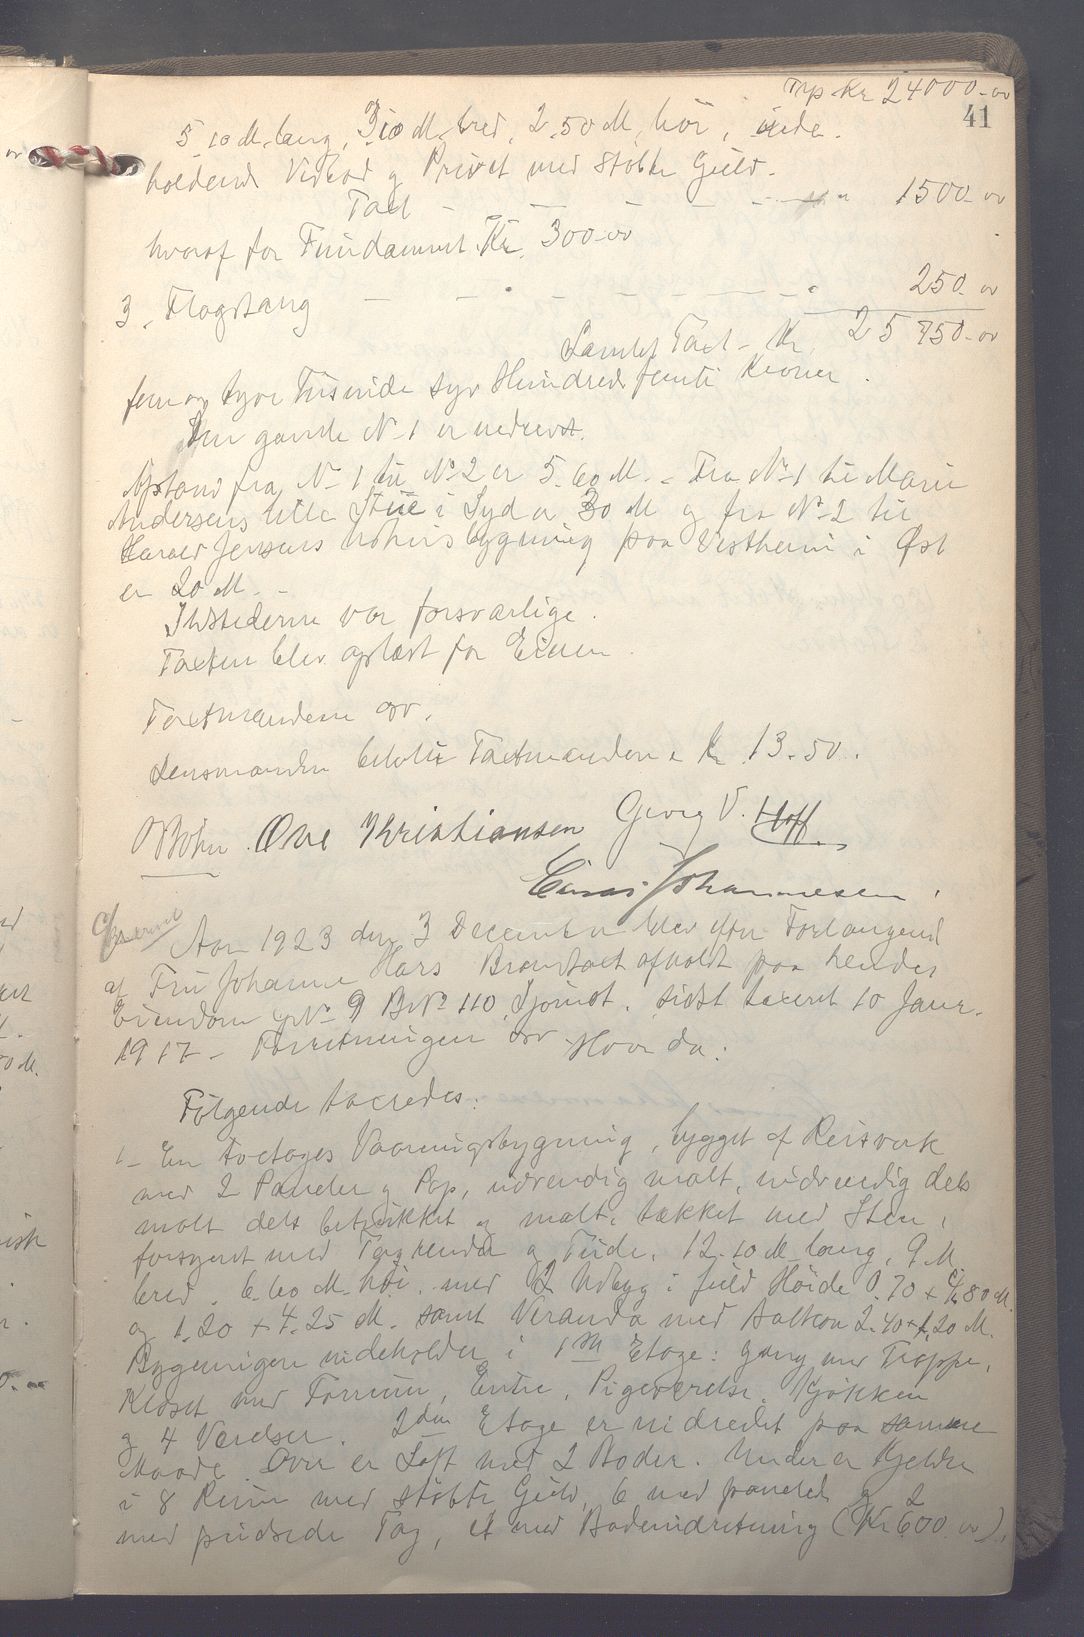 Trp Kr 24000-00
41
5.10 M. lang, 3.10 M. bred, 2.50 M. høi, inde-
holdende Vedbod og Privet med støbte Gulv.
Taxt - - - - - " 1500-00
hvoraf for Fundament Kr. 300-00
3. Flagstang - - - - - 250-00
Samlet Taxt - Kr. 25 750-00
fem og tyve Tusinde syv Hundrede femti Kroner.
Den gamle No 1 er nedrevet.
Afstand fra No 1 til No 2 er 5.60 M. - Fra No 1 til Marie
Andersens lille Stue i Syd er 30 M og fra No 2 til
Harald Jensens Uthusbygning paa Vestheim i Øst
er 20 M. -
Ildstederne var forsvarlige.
Taxten blev oplæst for Eieren.
Taxtmændene osv.
Lensmanden betalte Taxtmændene Kr. 13.50.
OBøhn. Ove Kristiansen Georg V. Hoff
Einar Johannesen.
Aar 1923 den 3 December blev efter Forlangend
af Fru Johanne Hars Brandtaxt afholdt paa hendes
Eiendom gNo 9 BNo 110, Tjømøt. sidst taxeret 10 Janr.
1917 - Forretningen osv. Hvor da:
Følgende taxeredes:
1 - En toetages Vaaningsbygning, bygget af Reisverk
med 2 Paneler og Pap, udvendig malt, indvendig dels
malt dels betrukket og malt, tækket med Sten,
forsynet med Tagrender og Tude, 12.10 M. lang, 9 M.
bred, 6.60 M. høi. med 2 Udbyg i fuld Høide 0.70 + 4.80 M.
og 1.20 + 4.25 M. samt Veranda med Balkon 2.40 + 1.20 M.
Bygningen indeholder i 1ste Etage: gang med Trappe,
Kloset med Forrum, Entre, Pigeværelse, Kjøkken
og 4 Værelser. 2den Etage er indredet paa samme
Maade. Over er Loft med 2 Boder. Under er Kjelder
i 8 Rum med støbte Gulv, 6 med panelede og 2
med pudsede Tag, et med Badeindretning (Kr 600.00).